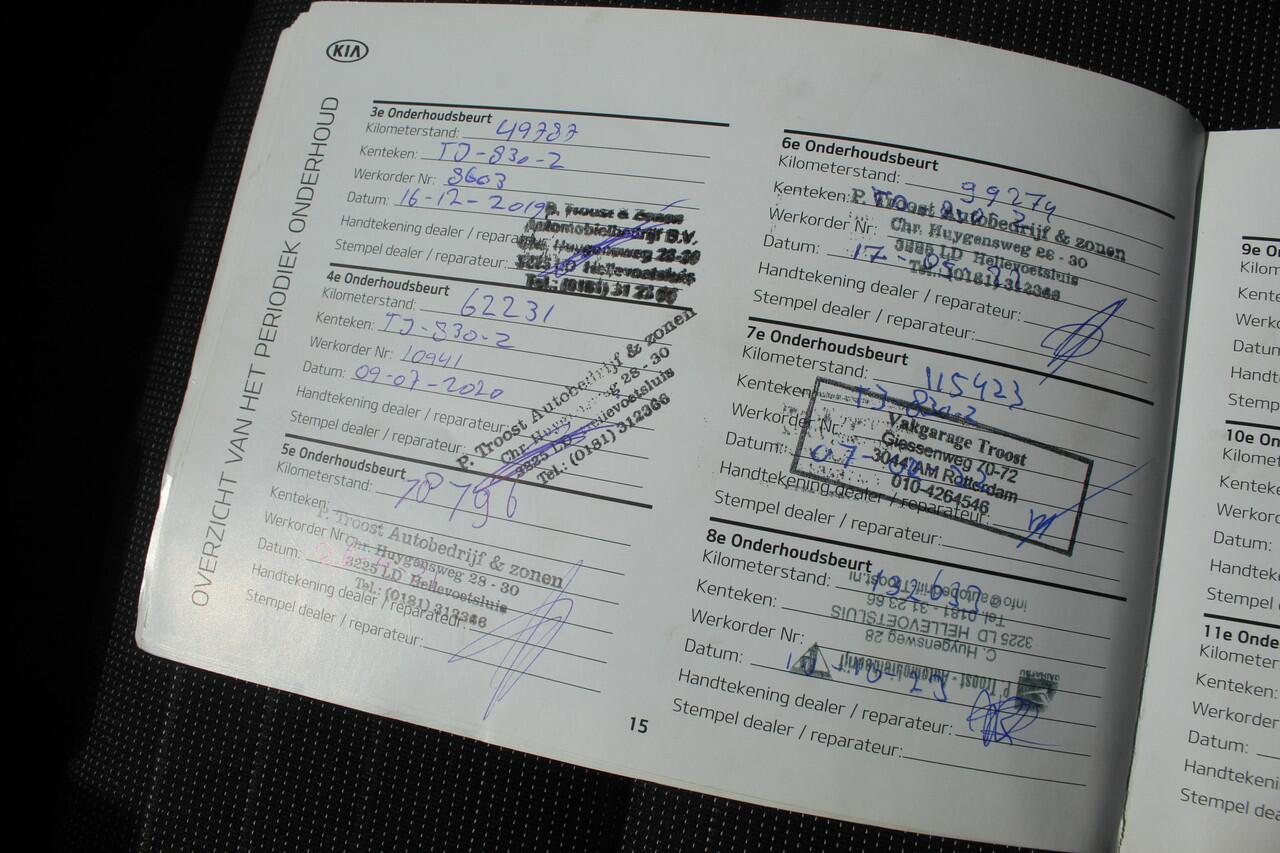 KIA
OVERZICHT VAN HET PERIODIEK ONDERHOUD
3e Onderhoudsbeurt
Kilometerstand: 49787
Kenteken: TJ-830-2
Werkorder Nr: 8603
Datum: 16-12-2019
Handtekening dealer / reparateur:
Stempel dealer / reparateur:
P. Troost & Zonen
Automobielbedrijf B.V.
Chr. Huygensweg 28-30
3225 LD Hellevoetsluis
Tel.: (0181) 31 23 66
4e Onderhoudsbeurt
Kilometerstand: 62231
Kenteken: TJ-830-2
Werkorder Nr: 10941
Datum: 09-07-2020
Handtekening dealer / reparateur:
Stempel dealer / reparateur:
P. Troost Autobedrijf & zonen
Chr. Huygensweg 28 - 30
3225 LD Hellevoetsluis
Tel.: (0181) 312366
5e Onderhoudsbeurt
Kilometerstand: 78796
Kenteken:
Werkorder Nr:
Datum:
Handtekening dealer / reparateur:
Stempel dealer / reparateur:
P. Troost Autobedrijf & zonen
Chr. Huygensweg 28 - 30
3225 LD Hellevoetsluis
Tel.: (0181) 312366
15
6e Onderhoudsbeurt
Kilometerstand: 99274
Kenteken:
Werkorder Nr:
Datum: 17-05-22
Handtekening dealer / reparateur:
Stempel dealer / reparateur:
P. Troost Autobedrijf & zonen
Chr. Huygensweg 28 - 30
3225 LD Hellevoetsluis
Tel.: (0181) 312366
7e Onderhoudsbeurt
Kilometerstand: 115423
Kenteken: TJ-830-2
Werkorder Nr:
Datum: 07-
Handtekening dealer / reparateur:
Stempel dealer / reparateur:
Vakgarage Troost
Giessenweg 70-72
3044 AM Rotterdam
010-4264546
8e Onderhoudsbeurt
Kilometerstand:
Kenteken:
Werkorder Nr:
Datum:
Handtekening dealer / reparateur:
Stempel dealer / reparateur:
P. Troost - Automobielbedrijf
C. Huygensweg 28
3225 LD HELLEVOETSLUIS
Tel. 0181 - 31 23 66
info@autobedrijfTroost.nl
9e On
Kilom
Kente
Werk
Datum
Handt
Stemp
10e On
Kilomet
Kenteke
Werkor
Datum:
Handtek
Stempel
11e Onde
Kilometer
Kenteken:
Werkorder
Datum:
Handtekeni
Stempel dea